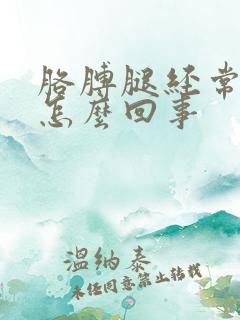 胳膊腿经常
怎麽回事
温纳泰
未经同意禁止转载